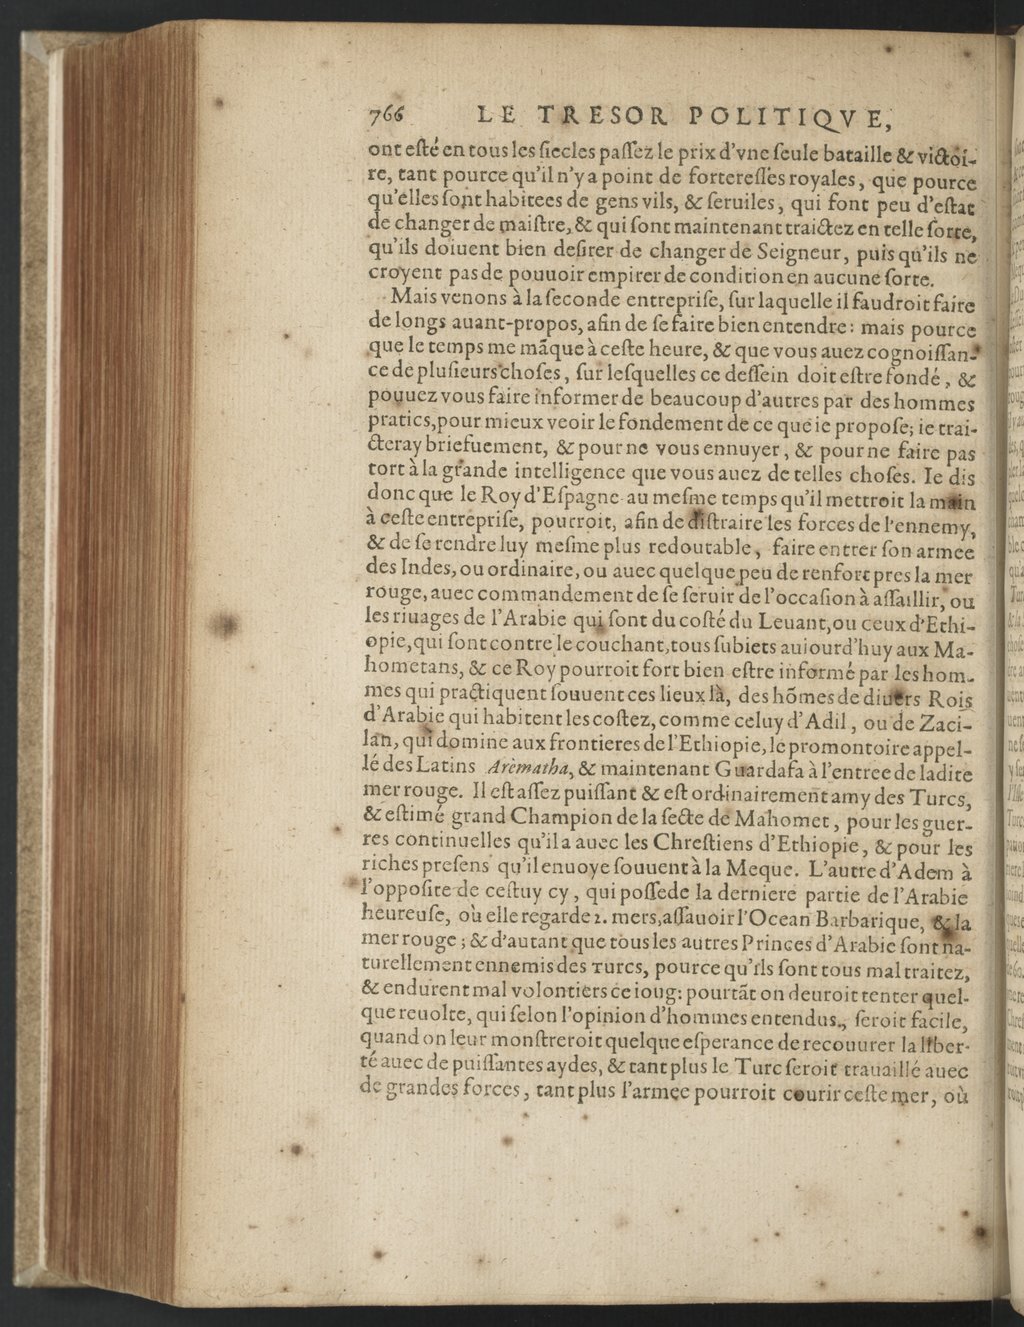 766 LE TRESOR POLITIQVE,
ont eſté en tous les ſiecles paſſez le prix d'vne ſeule bataille & victoi-
re, tant pource qu'il n'y a point de fortereſſes royales, que pource
qu'elles ſont habitees de gens vils, & ſeruiles, qui font peu d'eſtat
de changer de maiſtre, & qui ſont maintenant traictez en telle ſorte,
qu'ils doiuent bien deſirer de changer de Seigneur, puis qu'ils ne
croyent pas de pouuoir empirer de condition en aucune ſorte.
Mais venons à la ſeconde entrepriſe, ſur laquelle il faudroit faire
de longs auant-propos, afin de ſe faire bien entendre: mais pource
que le temps me mãque à ceſte heure, & que vous auez cognoiſſan-
ce de pluſieurs choſes, ſur leſquelles ce deſſein doit eſtre fondé, &
pouuez vous faire informer de beaucoup d'autres par des hommes
pratics, pour mieux veoir le fondement de ce que ie propoſe; ie trai-
cteray briefuement, & pour ne vous ennuyer, & pour ne faire pas
tort à la grande intelligence que vous auez de telles choſes. Ie dis
donc que le Roy d'Eſpagne au meſme temps qu'il mettroit la main
à ceſte entrepriſe, pourroit, afin de diſtraire les forces de l'ennemy,
& de ſe rendre luy meſme plus redoutable, faire entrer ſon armee
des Indes, ou ordinaire, ou auec quelque peu de renfort pres la mer
rouge, auec commandement de ſe ſeruir de l'occaſion à aſſaillir, ou
les riuages de l'Arabie qui ſont du coſté du Leuant, ou ceux d'Ethi-
opie, qui ſont contre le couchant, tous ſubiets auiourd'huy aux Ma-
hometans, & ce Roy pourroit fort bien eſtre informé par les hom-
mes qui practiquent ſouuent ces lieux là, des hõmes de diuers Rois
d'Arabie qui habitent les coſtez, comme celuy d'Adil, ou de Zaci-
lan, qui domine aux frontieres de l'Ethiopie, le promontoire appel-
lé des Latins Arèmatha, & maintenant Guardafa à l'entree de ladite
mer rouge. Il eſt aſſez puiſſant & eſt ordinairement amy des Turcs,
& eſtimé grand Champion de la ſecte de Mahomet, pour les guer-
res continuelles qu'il a auec les Chreſtiens d'Ethiopie, & pour les
riches preſens qu'il enuoye ſouuent à la Meque. L'autre d'Adem à
l'oppoſite de ceſtuy cy, qui poſſede la derniere partie de l'Arabie
heureuſe, où elle regarde 2. mers, aſſauoir l'Ocean Barbarique, & la
mer rouge; & d'autant que tous les autres Princes d'Arabie ſont na-
turellement ennemis des Turcs, pource qu'ils ſont tous mal traitez,
& endurent mal volontiers ce ioug: pourtãt on deuroit tenter quel-
que reuolte, qui ſelon l'opinion d'hommes entendus, ſeroit facile,
quand on leur monſtreroit quelque eſperance de recouurer la liber-
té auec de puiſſantes aydes, & tant plus le Turc ſeroit trauaillé auec
de grandes forces, tant plus l'armee pourroit courir ceſte mer, où